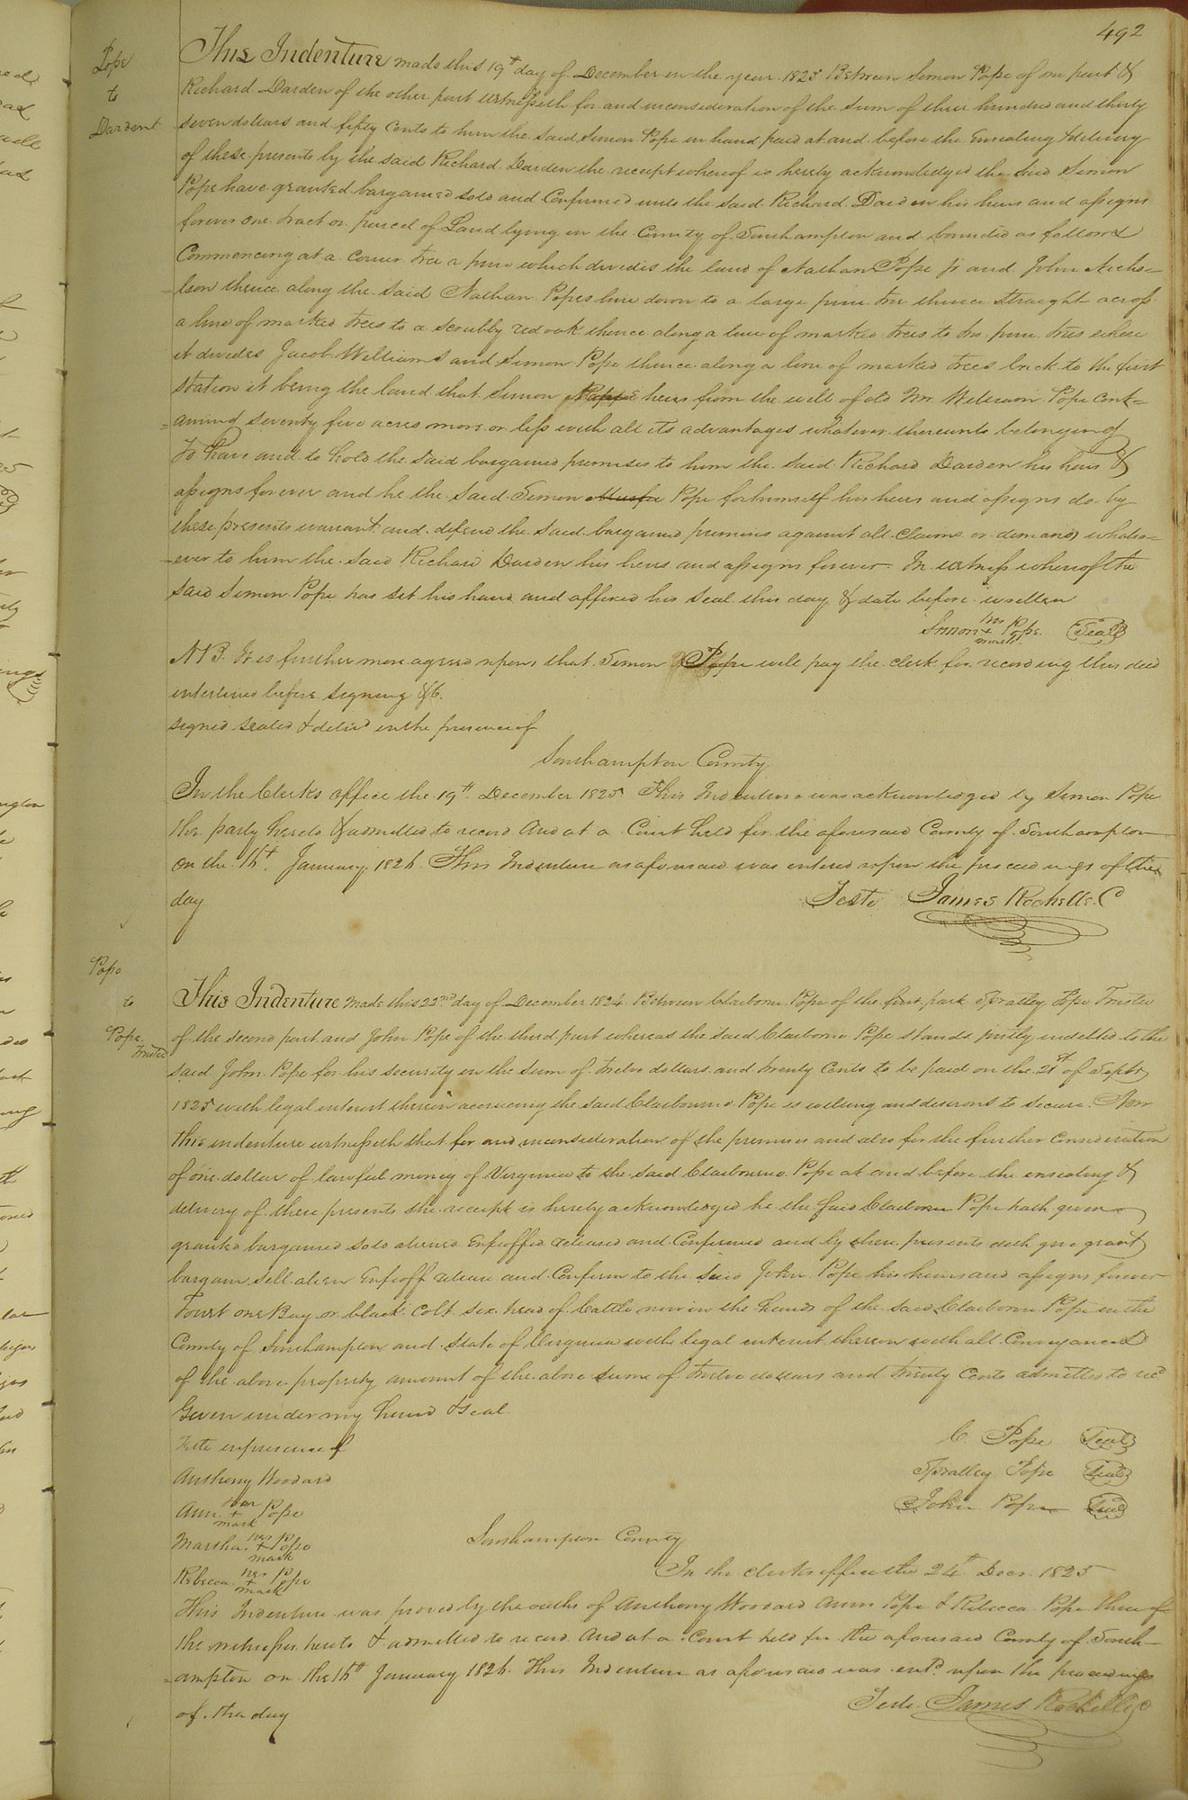 492
Pope
to
Dardent
This Indenture made this 19th day of December in the year 1825 Between Simon Pope of on part &
Richard Darden of the other part witnesseth for and inconsideration of the sum of three hundred and thirty
seven dollars and fifty Cents to him the said Simon Pope in hand paid at and before the Ensealing & delivery
of these presents by the said Richard Darden the receipt whereof is hereby acknowledged the said Simon
Pope have granted bargained sold and Confirmed unto the said Richard Darden his heirs and assigns
forever one tract or parcel of Land lying in the County of Southampton and bounded as follows
Commencing at a Corner tree a pine which divides the land of Nathan Pope jr and John Nichs=
=lson thence along the said Nathan Popes line down to a large pine tree thence straight across
a line of marked trees to a scrubby red oak thence along a line of marked trees to two pine trees where
it divides Jacob Williams and Simon Pope thence along a line of marked trees back to the first
station it being the land that Simon heirs from the will of old Wm Williams Pope cont=
=aining seventy five acres more or less with all its advantages whatever thereunto belonging
To have and to hold the said bargained premises to him the said Richard Darden his heirs &
assigns forever and he the said Simon Pope for himself his heirs and assigns do by
these presents warrant and defend the said bargained premises against all Claims or demands whatso=
=ever to him the said Richard Darden his heirs and assigns forever. In witness whereof the
said Simon Pope has set his hand and affixed his seal this day & date before written
Simon his + mark Pope Seal
NB. It is further more agreed upon that Simon Pope will pay the clerk for recording this deed
interlined before signing &c.
signed sealed & delivd in the presence of
Southampton County
In the Clerks office the 19th December 1825 This Indenture was acknowledged by Simon Pope
the party hereto & admitted to record And at a Court held for the aforesaid County of Southampton
on the 16th January 1826 This Indenture as aforesaid was entered upon the proceedings of the
day
Teste James Rochelle C
Pope
to
Pope Trustee
This Indenture made this 22nd day of December 1824 Between Claiborne Pope of the first part Spratley Pope Trustee
of the second part and John Pope of the third part whereas the said Claiborne Pope stands justly indebted to the
said John Pope for his security in the sum of twelve dollars and twenty Cents to be paid on the 21st of Septr
1825 with legal interest thereon accrueing the said Claibourne Pope is willing and desirous to secure. Now
this indenture witnesseth that for and inconsideration of the premises and also for the further Consideration
of one dollar of lawful money of Virginia to the said Claibourne Pope at and before the ensealing &
delivery of these presents the receipt is hereby acknowledged he the said Claiborne Pope hath given
granted bargained sold aliened Enfeoffed released and Confirmed and by these presents doth give grant
bargain sell alien Enfeoff release and Confirm to the said John Pope his heirs and assigns forever
one Bay or black Colt six head of Cattle now in the hands of the said Claiborne Pope in the
County of Southampton and State of Virginia with legal interest thereon with all Conveyances
of the above property amount of the above sume of twelve dollars and twenty Cents admitted to recd
Given under my hand & seal
Teste inpresence of
C. Pope Seal
Anthony Woodard
Spratley Pope Seal
Ann her + mark Pope
John Pope Seal
Martha her + mark Pope
Southampton County
Rebecca her + mark Pope
In the clerks office the 24th Decr 1825
This Indenture was proved by the oaths of Anthony Woodard Ann Pope & Rebecca Pope three of
the witnesses hereto & admitted to record And at a Court held for the aforesaid County of South=
=ampton on the 16th January 1826. This Indenture as aforesaid was entd upon the proceedings
of the day
Teste James Rochelle C